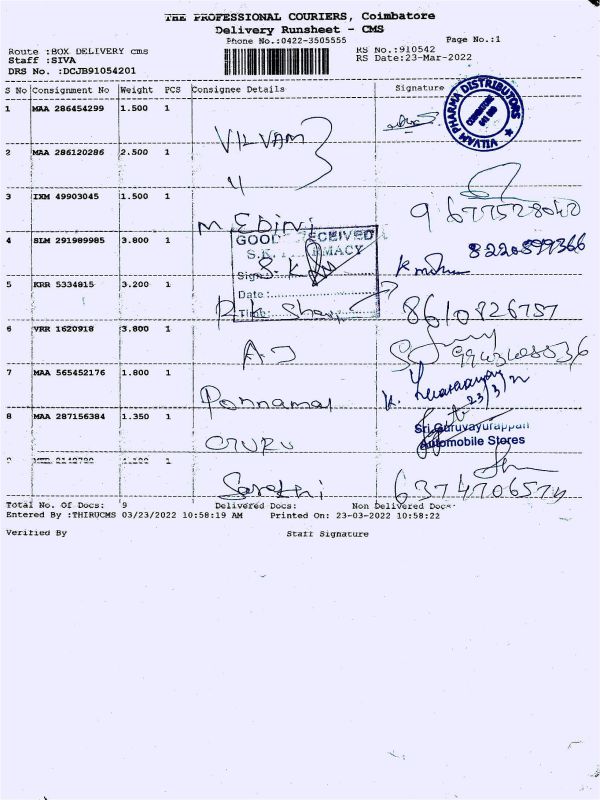 THE PROFESSIONAL COURIERS, Coimbatore
Delivery Runsheet - CMS
Phone No.:0422-3505555
Page No.:1
Route :BOX DELIVERY cms
Staff :SIVA
DRS No. :DCJB91054201
RS No.:910542
RS Date:23-Mar-2022
S No Consignment No Weight PCS Consignee Details Signature
1 MAA 286454299 1.500 1
VILVAM PHARMA DISTRIBUTORS
COIMBATORE
VILVAM
2 MAA 286120286 2.500 1
"
3 IXM 49903045 1.500 1
MEDINI 9677528040
4 SLM 291989985 3.800 1
GOODS RECEIVED
S.K.
S.K 8220599366
5 KRR 5334815 3.200 1
Date :
Time:
R.K 8610826757
6 VRR 1620918 3.800 1
AJ
7 MAA 565452176 1.800 1
Ponnamai K.
23/3/22
8 MAA 287156384 1.350 1
GURU
Sri Guruvayurappan
Automobile Stores
1
Sarathi
Total No. Of Docs: 9 Delivered Docs: Non Delivered Docs:
Entered By :THIRUCMS 03/23/2022 10:58:19 AM Printed On: 23-03-2022 10:58:22
Verified By Staff Signature